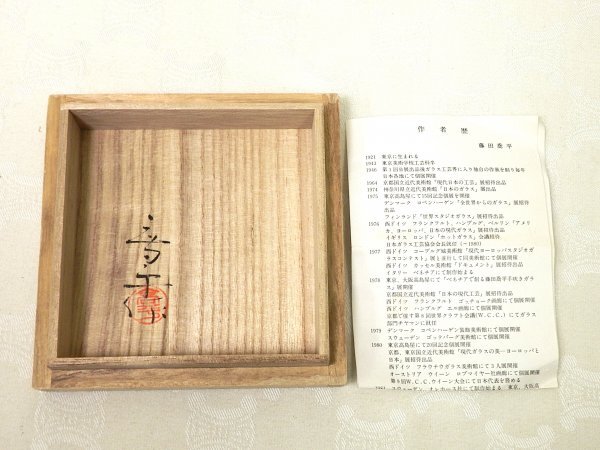 作者歴
藤田喬平
1921 東京に生まれる
1944 東京美術学校工芸科卒
1946 第1回日展出品後ガラス工芸界に入り独自の作風を創り毎年
日本各地にて個展開催
1964 京都国立近代美術館「現代日本の工芸」展招待出品
1974 神奈川県立近代美術館「日本のガラス」展出品
1975 東京高島屋にて15回記念個展を開催
デンマーク コペンハーゲン「全世界からのガラス」展招待出
品
フィンランド「世界スタジオガラス」展招待出品
1976 西ドイツ フランクフルト、ハンブルグ、ベルリン「アメリ
カ、ヨーロッパ、日本の現代ガラス」展招待出品
イギリス ロンドン「ホットガラス」会議招待
日本ガラス工芸協会会長就任(~1980)
1977 西ドイツ コーブルグ城美術館「現代ヨーロッパスタジオガ
ラスコンテスト」展と並行して同美術館にて個展開催
西ドイツ カッセル美術館「ドキュメンと」展招待出品
イタリー ベネチアにて制作始まる
1978 東京、大阪高島屋にて「ベネチアで創る藤田喬平手吹きガラ
ス」展開催
京都国立近代美術館「日本の現代工芸」展招待出品
西ドイツ フランクフルト ゴッチョーク画廊にて個展開催
西ドイツ ハンブルグ エル画廊にて個展開催
京都で催す第8回世界クラフト会議(W.C.C.)にてガラス
部門チヤマンに就任
1979 デンマーク コペンハーゲン装飾美術館にて個展開催
スウェーデン ゴッラバーグ美術館にて個展開催
1980 東京高島屋にて20回記念個展開催
京都、東京国立近代美術館「現代ガラスの美―ヨーロッパと
日本」展招待出品
西ドイツ フラウナウガラス美術館にて3人展開催
オーストリア ウイーン ロブマイヤー社画廊にて個展開催
第9回W.C.C.ウイーン大会にて日本代表を務める
1981 スウェーデン オレホース社にて制作始まる 東京、大阪高
喬平作